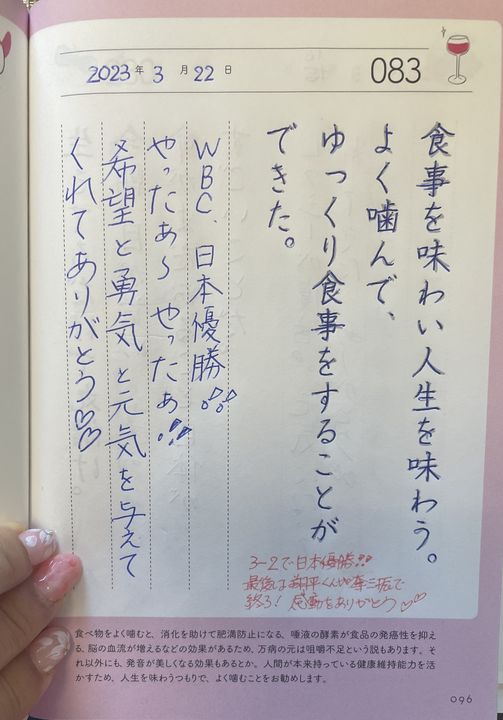 2023年3月22日
083
食事を味わい人生を味わう。
よく噛んで、
ゆっくり食事をすることが
できた。
WBC、日本優勝!!
やったぁ〜やったぁ!!!
希望と勇気と元気を与えて
くれてありがとう♡♡
3-2で日本優勝!!
最後は翔平くんが奪三振で
終了!感動をありがとう♡♡
食べ物をよく噛むと、消化を助けて肥満防止になる、唾液の酵素が食品の発癌性を抑え
る、脳の血流が増えるなどの効果があるため、万病の元は咀嚼不足という説もあります。そ
れ以外にも、発音が美しくなる効果もあるとか。人間が本来持っている健康維持能力を活
かすため、人生を味わうつもりで、よく噛むことをお勧めします。
096